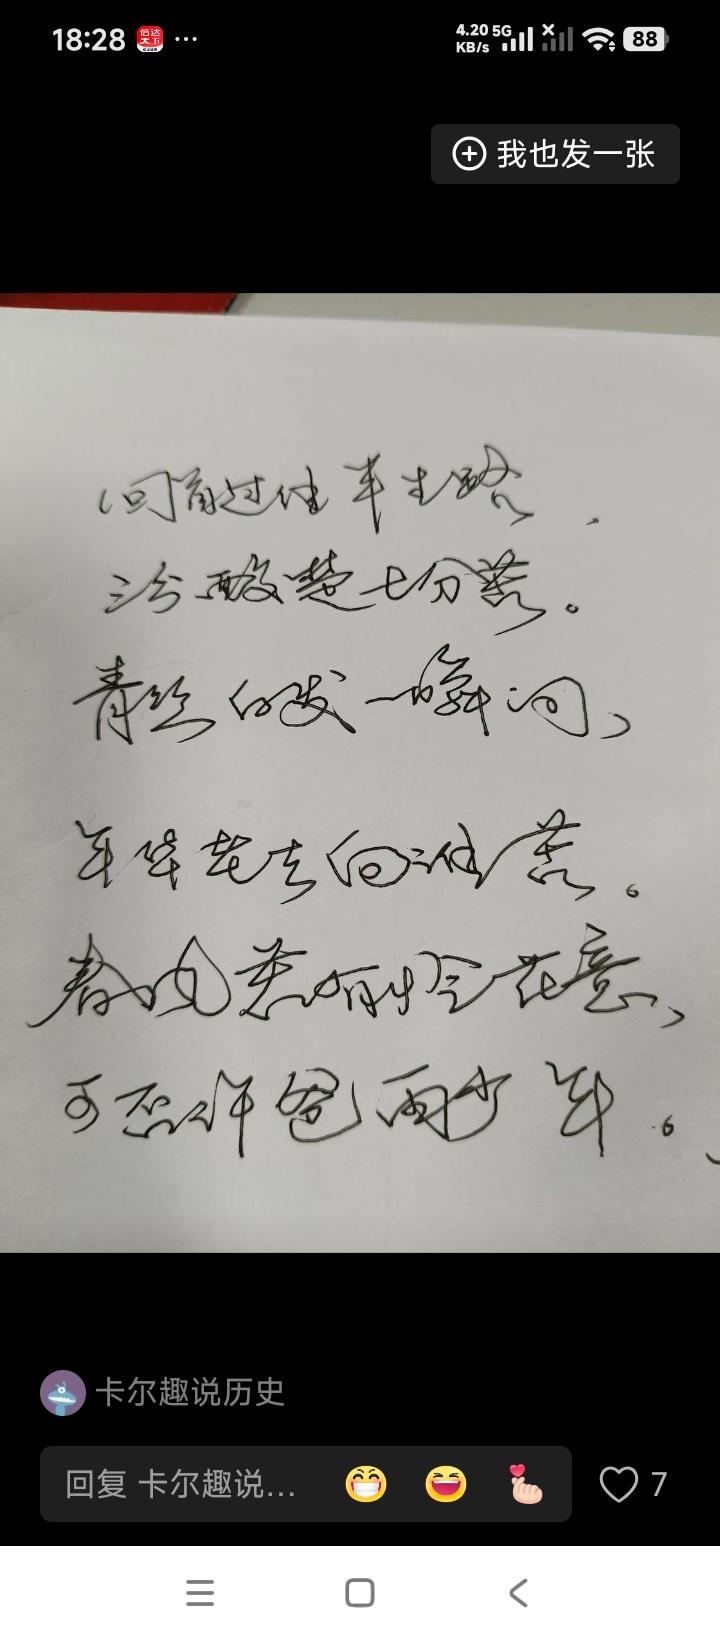 18:28
4.20 KB/s 5G 88
我也发一张
回首过往半生路，
三分酸楚七分苦。
青丝白发一瞬间，
年华老去向谁苦。
春风若有怜花意，
可否许爸两少年。
卡尔趣说历史
回复 卡尔趣说... 7